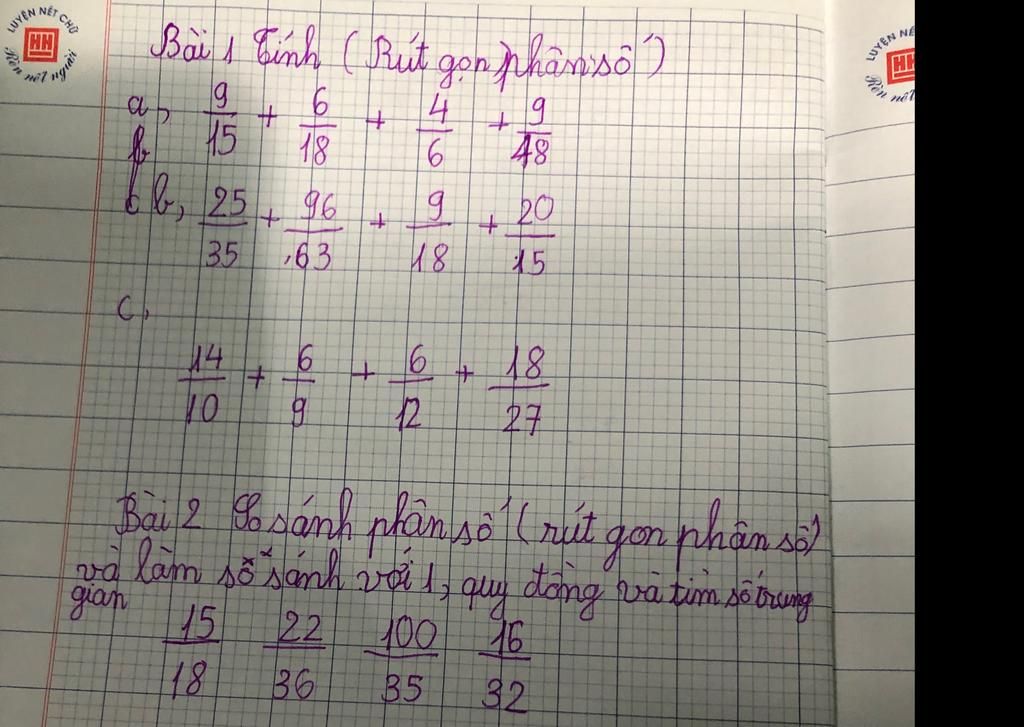 LUYỆN NÉT CHỮ
HH
Rèn nết người
LUYỆN NÉ
HH
Rèn nết
Bài 1 Tính (Rút gọn phân số)
a, 9/15 + 6/18 + 4/6 + 9/48
b, 25/35 + 96/63 + 9/18 + 20/15
c,
14/10 + 6/9 + 6/12 + 18/27
Bài 2 So sánh phân số (rút gọn phân số)
và làm số sánh với 1, quy đồng và tìm số trung
gian
15/18 22/36 100/35 16/32